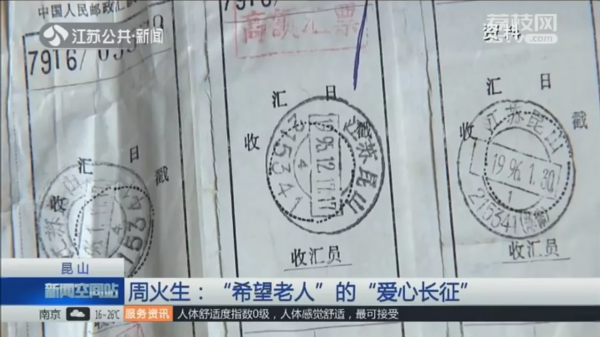 中国人民邮政汇
江苏公共·新闻
荔枝网
资料
7916/0
7916/
高额汇票
汇 日
收 戳
215341
汇 日
收 戳
江苏昆山
1996.12.17.17
4
215341
收汇员
汇 日
收 戳
江苏昆山
1996.1.30.
1
215341
收汇员
昆山
新闻空间站
周火生：“希望老人”的“爱心长征”
南京 16~26℃ 服务资讯 人体舒适度指数0级，人体感觉舒适，最可接受